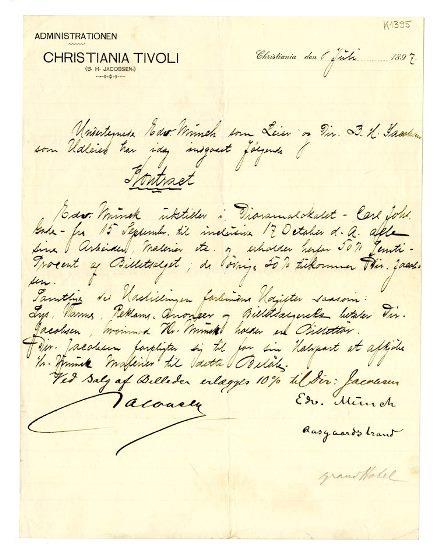 K1395
ADMINISTRATIONEN
CHRISTIANIA TIVOLI
(B. H. JACOBSEN.)
Christiania den 1 Juli 1897
Undertegnede Edv. Munch som Leier og Dir. B. H. Jacobsen
som Udleier har idag indgaaet følgende
Kontract
Edv. Munch udstiller i Dioramalokalet – Carl Joh.
Gade – fra 15 September til inclusive 17 October d. A. alle
sine Arbeider, Malerier etc. og erholder herfor 50%
Procent af Billetsalget; de øvrige 50% tilkommer Dir. Jacob-
sen.
Samtlige til Udstillingen forbundne Udgifter saasom:
Lys, Varme, Reklame, Annoncer og betaler Dir.
Jacobsen, Hr. Munch holder en Billettør.
Dir. Jacobsen forpligter sig til for sin Halvpart at afkjøbe
Hr. Munch Malerier til dette Beløb.
Ved Salg af Billeder erlægges 10% til Dir. Jacobsen
Jacobsen
Edv. Munch
Aasgaardstrand
Grand Hotel